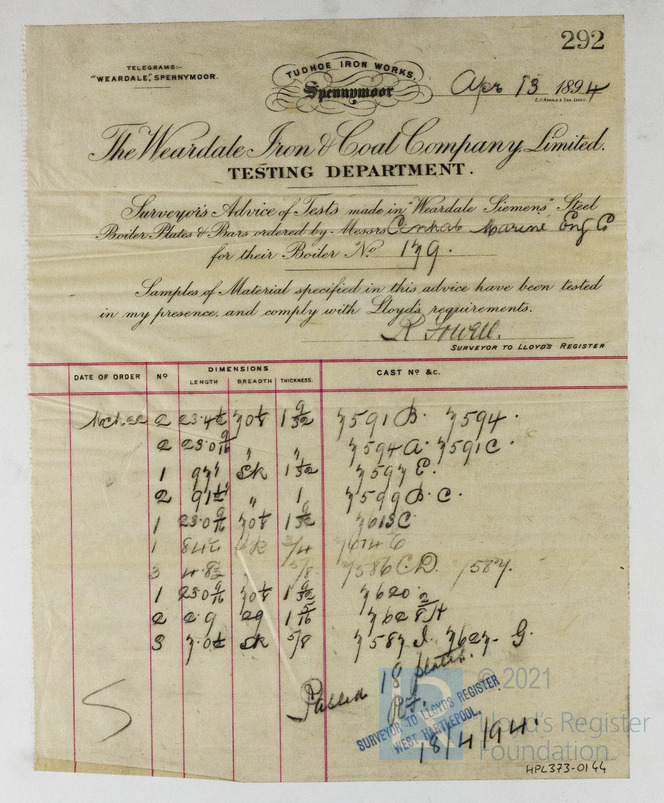 292
TELEGRAMS:-
"WEARDALE," SPENNYMOOR.
TUDHOE IRON WORKS,
Spennymoor
Apr 13 1894
The Weardale Iron & Coal Company, Limited.
TESTING DEPARTMENT.
Surveyor's Advice of Tests made in "Weardale Siemens" Steel
Boiler Plates & Bars ordered by Messrs Central Marine Eng Co
for their Boiler No 179.
Samples of Material specified in this advice have been tested
in my presence, and comply with Lloyd's requirements.
R Fowell.
SURVEYOR TO LLOYD'S REGISTER
DATE OF ORDER No DIMENSIONS LENGTH BREADTH THICKNESS. CAST No &c.
2 70⅛ 1 9/32 7591 B. 7594.
2 " " 7594 A. 7591 C.
1 Sk 1 7597 E.
2 " 1 7599 B. C.
1 23.0 70⅛ 1 9/32 7613 C
1 3/4
3 5/8 7586 C.D. 7587.
1 23.0 70⅛ 1 9/32 7620
2 2.9 29 1 5/16 7628 H
3 7.0 Sk 5/8 7587 I. 7627 G.
Passed 18 plates.
R.F.
SURVEYOR TO LLOYD'S REGISTER
WEST HARTLEPOOL.
18/4/94.
© 2021
Lloyd's Register
Foundation
HPL373-0144